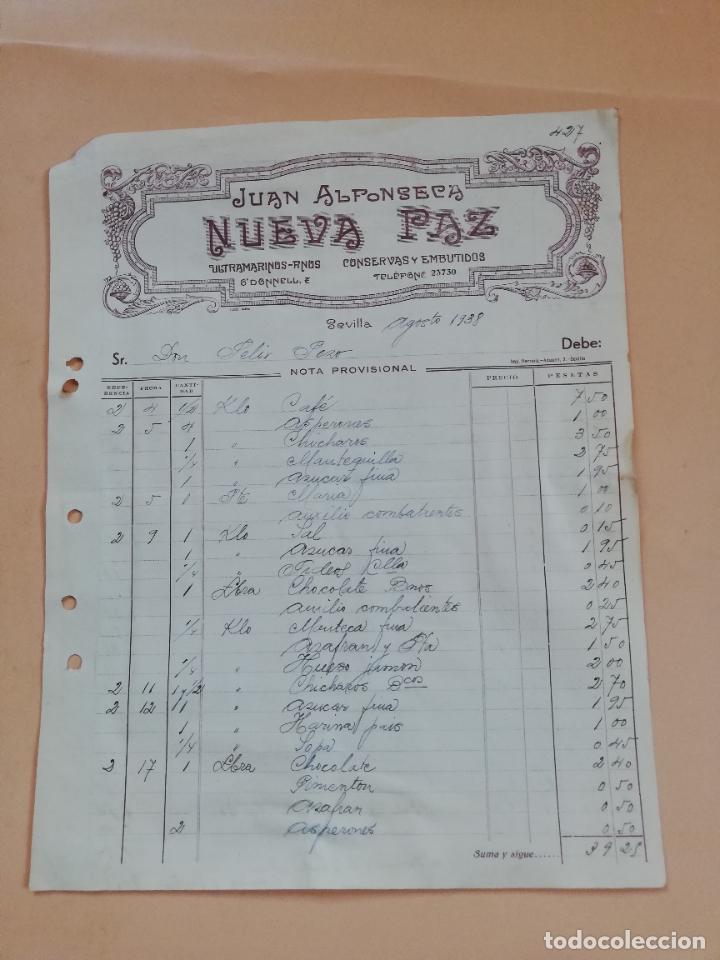 427
JUAN ALFONSECA
NUEVA PAZ
ULTRAMARINOS-FINOS CONSERVAS Y EMBUTIDOS
O'DONNELL, 2 TELÉFONO 23730
Sevilla Agosto 1938
Sr. Don Felix Pozo Debe:
NOTA PROVISIONAL
REFERENCIA FECHA CANTIDAD PRECIO PESETAS
2 4 1/2 Klo Café 7 50
2 5 4 Asperones 1 00
1 " Chicharos 3 50
1/4 " Mantequilla 2 75
1 " Azucar fina 1 95
2 5 1 Pte Maria 1 00
Auxilio combatientes 0 10
2 9 1 Klo Sal 0 15
1 " Azucar fina 1 95
1/4 " Fideos 0 45
1 Lbra Chocolate 2 40
Auxilio combatientes 0 25
1/4 Klo Manteca fina 2 75
Azafran y 1 50
1/4 " Hueso jamon 2 00
2 11 1 y 1/2 " Chicharos Bcos 2 70
2 12 1 " Azucar fina 1 95
1 " Harina pais 1 00
1/4 " Sopa 0 45
2 17 1 Lbra Chocolate 2 40
Pimenton 0 50
Azafran 0 50
2 Asperones 0 50
Suma y sigue...... 39 25
todocoleccion
todocoleccion.net